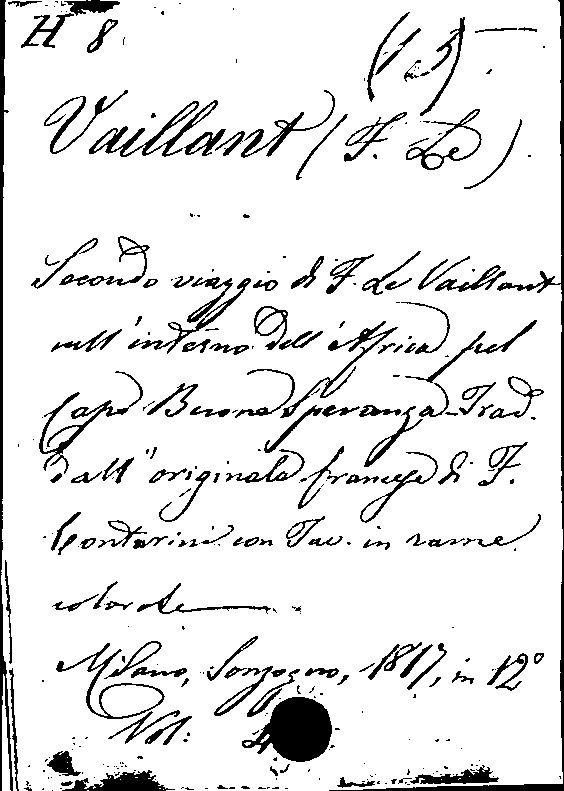 H 8 (1-5)
Vaillant (F. Le)
Secondo viaggio di F. Le Vaillant
nell'interno dell'Africa pel
Capo Buona Speranza - Trad.
dall'originale francese di F.
Contarini con Tav. in rame
colorate
Milano, Sonzogno, 1817, in 12°
Vol: 4